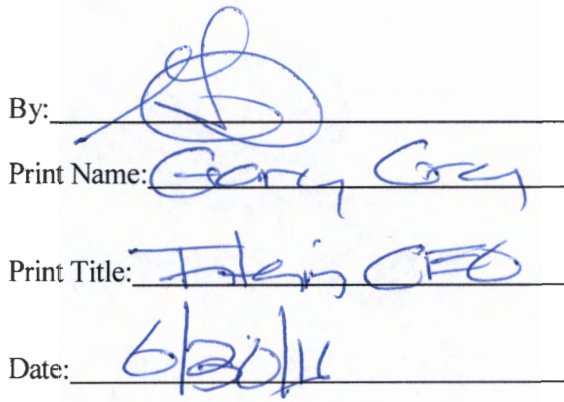 By:
Print Name: Gary
Print Title: Interim CFO
Date: 6/30/11